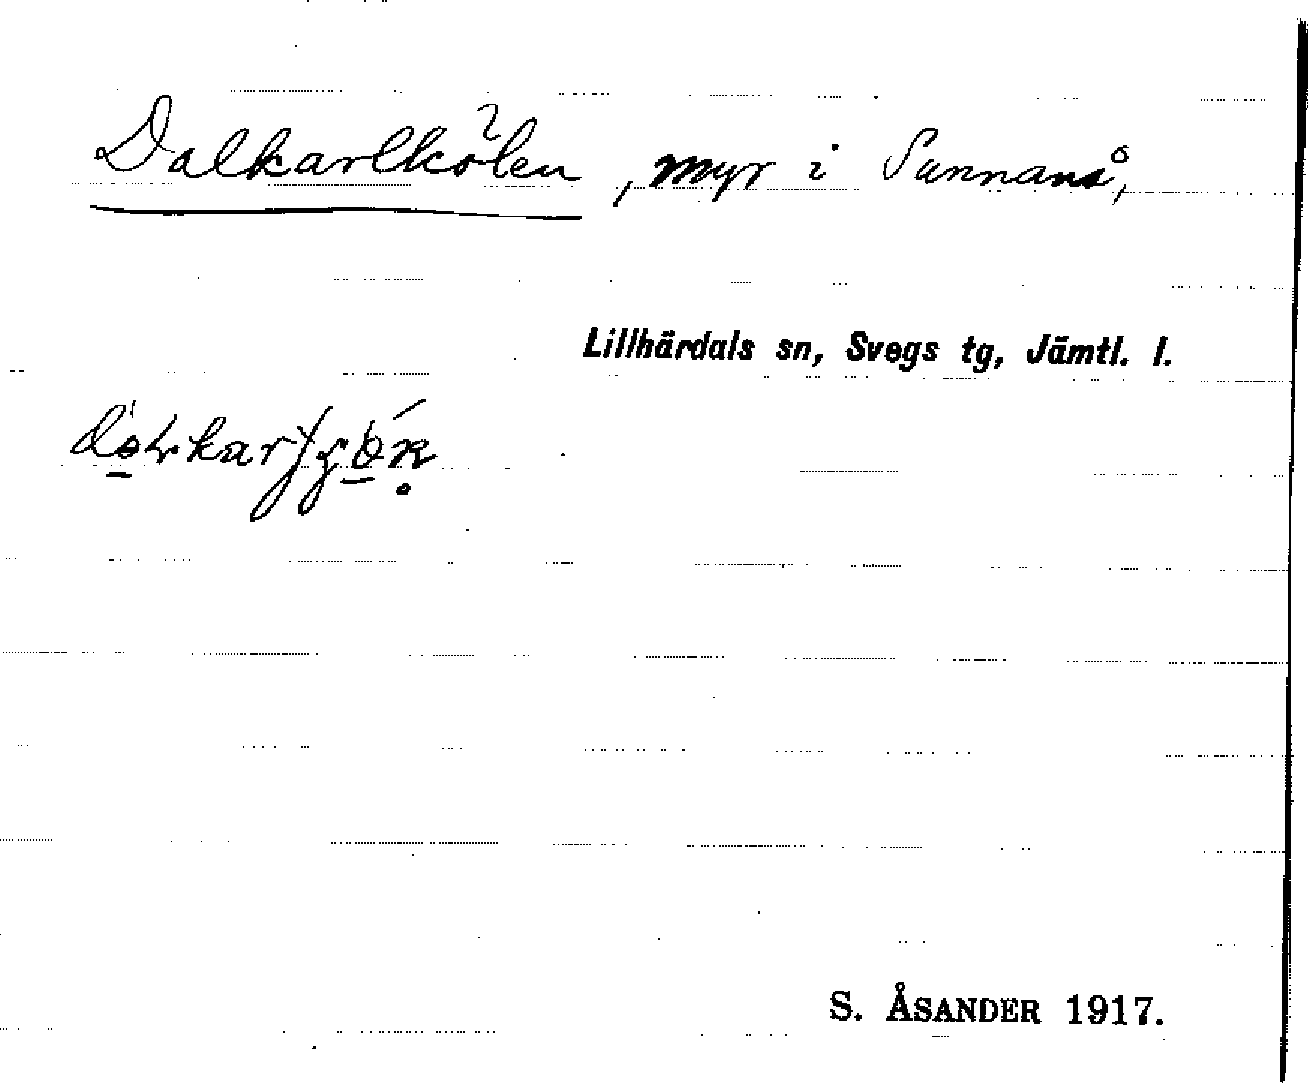 Dalkarlkölen, myr i Sunnanå,
Lillhärdals sn, Svegs tg, Jämtl. l.
S. ÅSANDER 1917.